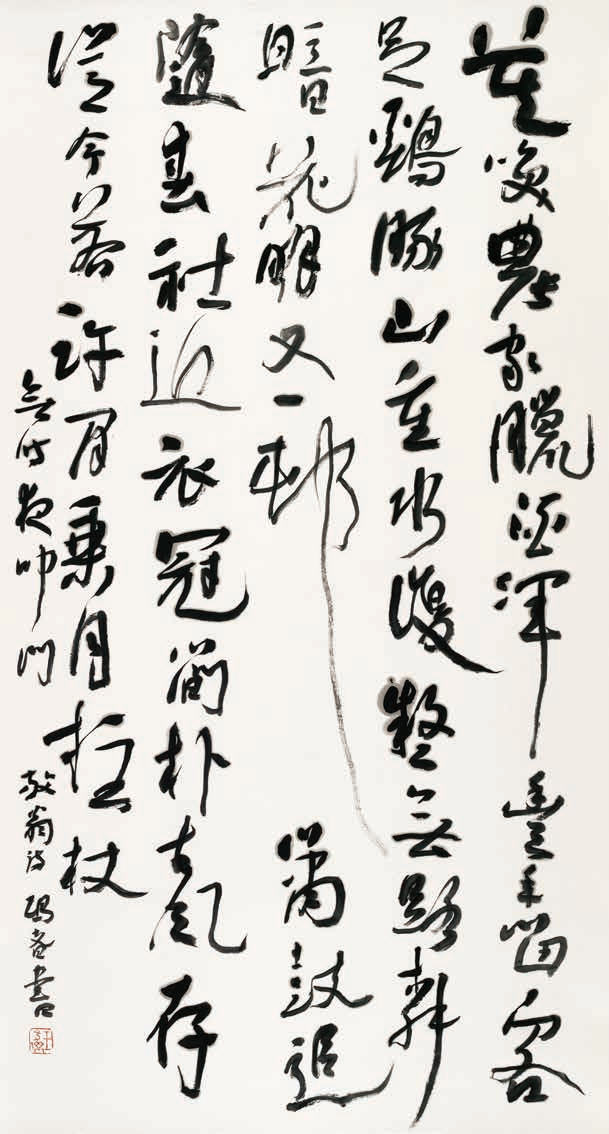 莫咲農家臘酒渾豐年留客
足鷄豚山重水複疑無路柳
暗花明又一邨簫鼓追
隨春社近衣冠簡朴古風存
從今若許閒乘月拄杖
無時夜叩門
放翁詩 書